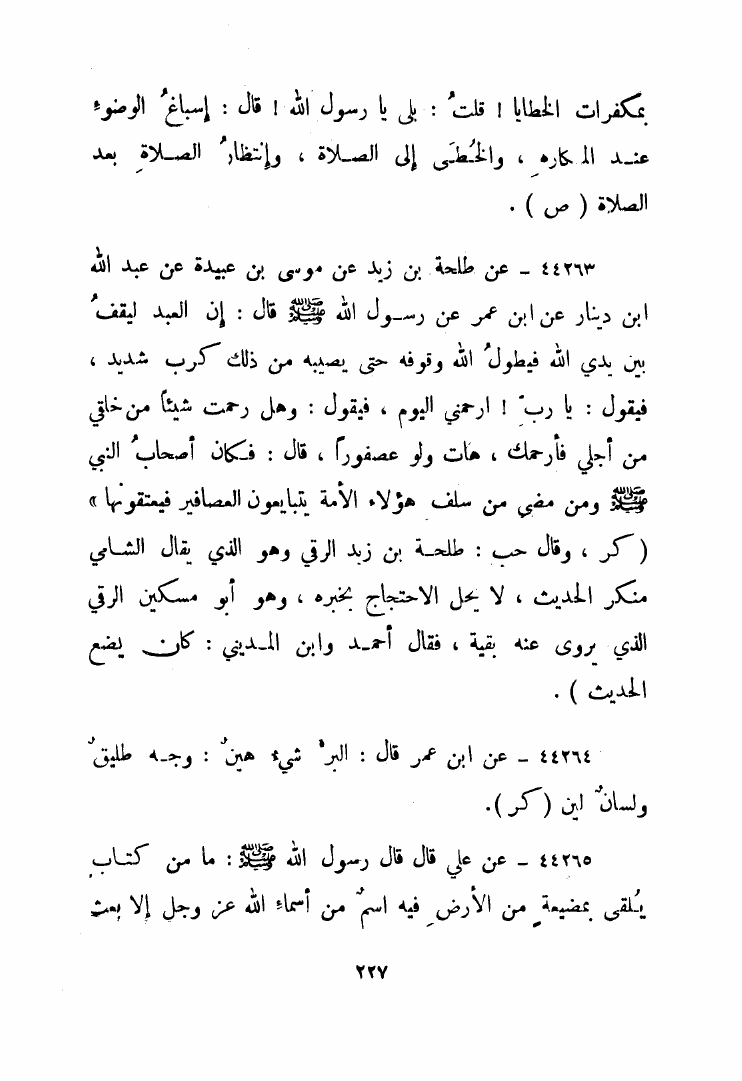 بمكفرات الخطايا ! قلتُ : بلى يا رسول الله ! قال : إسباغُ الوضوءِ
عنـد المكارهِ ، والخُطَى إلى الصـلاة ، وإنتظارُ الصـلاةِ بعد
الصلاة ( ص ) .
٤٤٢٦٣ ـ عن طلحة بن زيد عن موسى بن عبيدة عن عبد الله
ابن دينار عن ابن عمر عن رسـول الله ﷺ قال : إن العبد ليقفُ
بين يدي الله فيطولُ الله وقوفه حتى يصيبه من ذلك كرب شديد ،
فيقول : يا ربِّ ! ارحمني اليوم ، فيقول : وهل رحمت شيئاً من خلقي
من أجلي فأرحمك ، هات ولو عصفوراً ، قال : فـكان أصحابُ النبي
ﷺ ومن مضى من سلف هؤلاء الأمة يتبايعون العصافير فيعتقونها »
( كر ، وقال حب : طلحـة بن زيد الرقي وهو الذي يقال الشـامي
منكر الحديث ، لا يحل الاحتجاج بخبره ، وهو أبو مسكين الرقي
الذي يروى عنه بقية ، فقال أحمـد وابن المـديني : كان يضع
الحديث ) .
٤٤٢٦٤ ـ عن ابن عمر قال : البرُّ شيءٌ هينٌ : وجـه طليقٌ
ولسانٌ لين (كر).
٤٤٢٦٥ ـ عن علي قال قال رسول الله ﷺ : ما من كتـابٍ
يُلقى بمضيعةٍ من الأرضِ فيه اسمٌ من أسماءِ الله عز وجل إلا بعث
٢٢٧